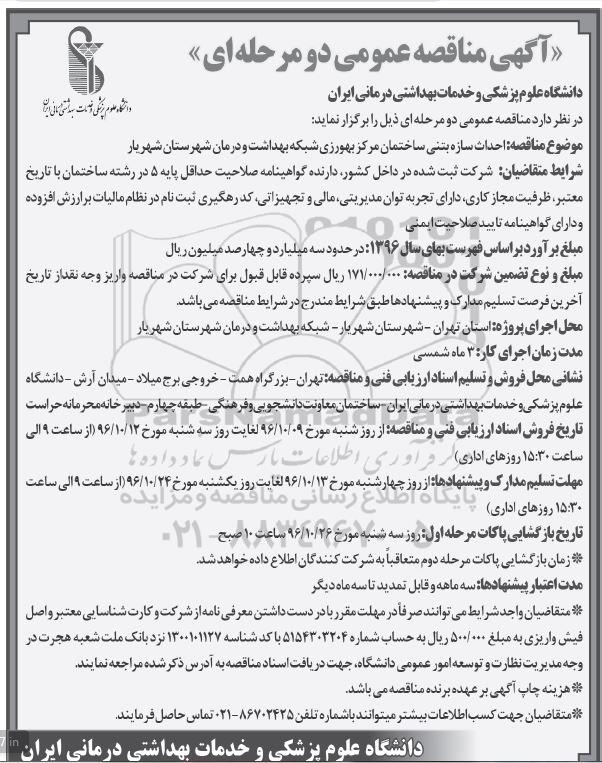 «آگهی مناقصه عمومی دو مرحله ای»
دانشگاه علوم پزشکی و خدمات بهداشتی درمانی ایران
دانشگاه علوم پزشکی و خدمات بهداشتی درمانی ایران
در نظر دارد مناقصه عمومی دو مرحله ای ذیل را برگزار نماید:
موضوع مناقصه: احداث سازه بتنی ساختمان مرکز بهورزی شبکه بهداشت و درمان شهرستان شهریار
شرایط متقاضیان: شرکت ثبت شده در داخل کشور، دارنده گواهینامه صلاحیت حداقل پایه ۵ در رشته ساختمان با تاریخ
معتبر، ظرفیت مجاز کاری، دارای تجربه توان مدیریتی، مالی و تجهیزاتی، کد رهگیری ثبت نام در نظام مالیات بر ارزش افزوده
و دارای گواهینامه تایید صلاحیت ایمنی
مبلغ برآورد براساس فهرست بهای سال ۱۳۹۶: در حدود سه میلیارد و چهارصد میلیون ریال
مبلغ و نوع تضمین شرکت در مناقصه: ۱۷۱/۰۰۰/۰۰۰ ریال سپرده قابل قبول برای شرکت در مناقصه واریز وجه نقد از تاریخ
آخرین فرصت تسلیم مدارک و پیشنهادها طبق شرایط مندرج در شرایط مناقصه می باشد.
محل اجرای پروژه: استان تهران - شهرستان شهریار - شبکه بهداشت و درمان شهرستان شهریار
مدت زمان اجرای کار: ۳ ماه شمسی
نشانی محل فروش و تسلیم اسناد ارزیابی فنی و مناقصه: تهران - بزرگراه همت - خروجی برج میلاد - میدان آرش - دانشگاه
علوم پزشکی و خدمات بهداشتی درمانی ایران - ساختمان معاونت دانشجویی و فرهنگی - طبقه چهارم - دبیرخانه محرمانه حراست
تاریخ فروش اسناد ارزیابی فنی و مناقصه: از روز شنبه مورخ ۹۶/۱۰/۰۹ لغایت روز سه شنبه مورخ ۹۶/۱۰/۱۲ (از ساعت ۹ الی
ساعت ۱۵:۳۰ روزهای اداری)
مهلت تسلیم مدارک و پیشنهادها: از روز چهارشنبه مورخ ۹۶/۱۰/۱۳ لغایت روز یکشنبه مورخ ۹۶/۱۰/۲۴ (از ساعت ۹ الی ساعت
۱۵:۳۰ روزهای اداری)
تاریخ بازگشایی پاکات مرحله اول: روز سه شنبه مورخ ۹۶/۱۰/۲۶ ساعت ۱۰ صبح
※ زمان بازگشایی پاکات مرحله دوم متعاقباً به شرکت کنندگان اطلاع داده خواهد شد.
مدت اعتبار پیشنهادها: سه ماهه و قابل تمدید تا سه ماه دیگر
※ متقاضیان واجد شرایط می توانند صرفاً در مهلت مقرر با در دست داشتن معرفی نامه از شرکت و کارت شناسایی معتبر و اصل
فیش واریزی به مبلغ ۵۰۰/۰۰۰ ریال به حساب شماره ۵۱۵۴۳۰۳۲۰۴ با کد شناسه ۱۳۰۰۱۰۱۱۲۷ نزد بانک ملت شعبه هجرت در
وجه مدیریت نظارت و توسعه امور عمومی دانشگاه، جهت دریافت اسناد مناقصه به آدرس ذکر شده مراجعه نمایند.
※ هزینه چاپ آگهی بر عهده برنده مناقصه می باشد.
※ متقاضیان جهت کسب اطلاعات بیشتر میتوانند با شماره تلفن ۸۶۷۰۲۴۲۵-۰۲۱ تماس حاصل فرمایند.
دانشگاه علوم پزشکی و خدمات بهداشتی درمانی ایران